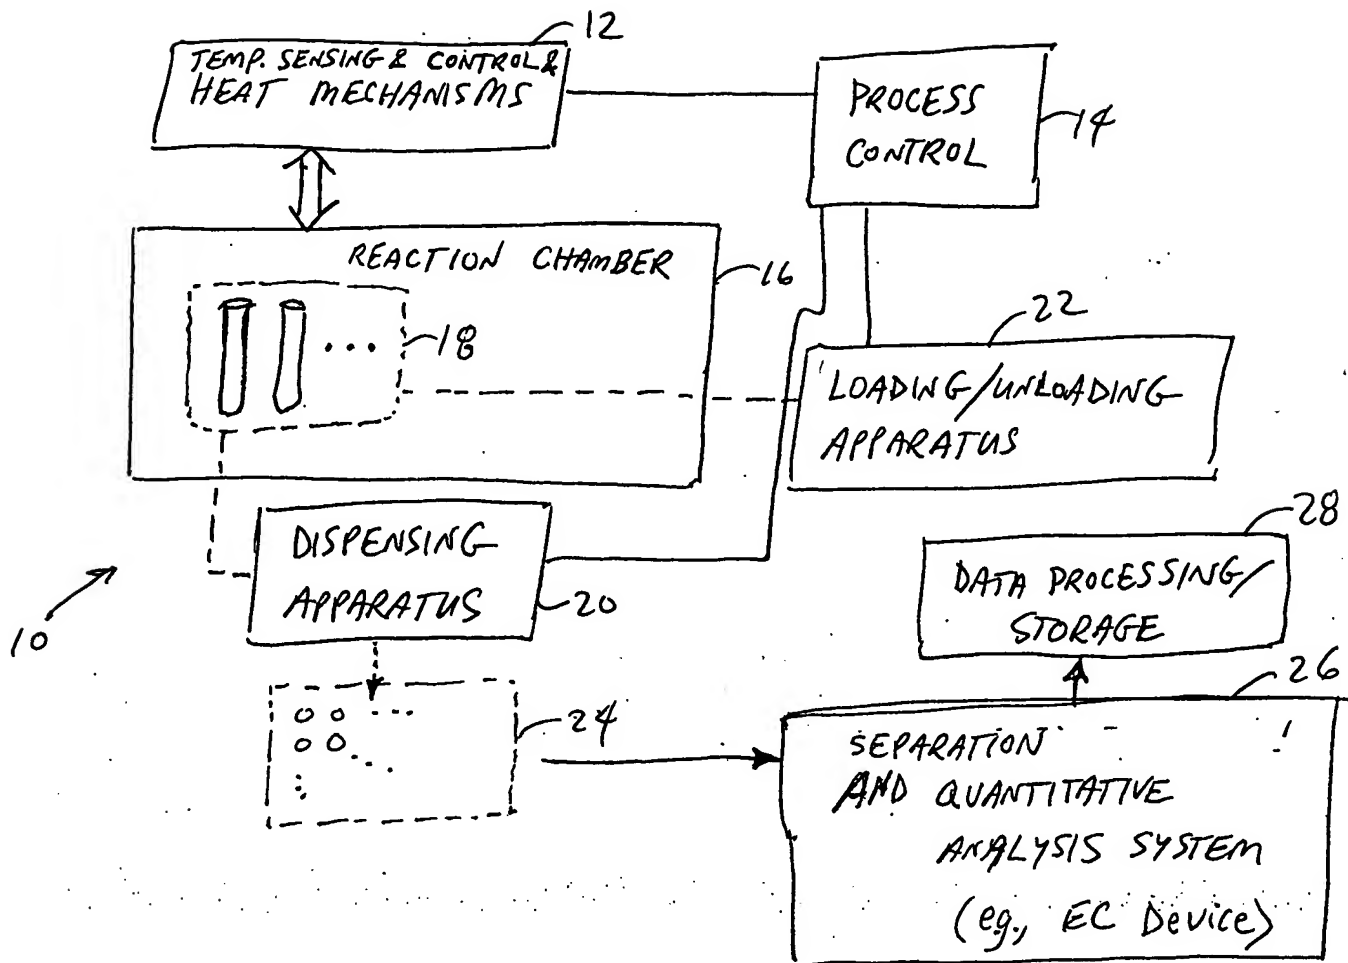 12
TEMP. SENSING & CONTROL &
HEAT MECHANISMS
PROCESS
CONTROL
14
REACTION CHAMBER
16
18
22
LOADING/UNLOADING
APPARATUS
DISPENSING
APPARATUS
20
10
28
DATA PROCESSING/
STORAGE
24
26
SEPARATION
AND QUANTITATIVE
ANALYSIS SYSTEM
(eg., EC Device)